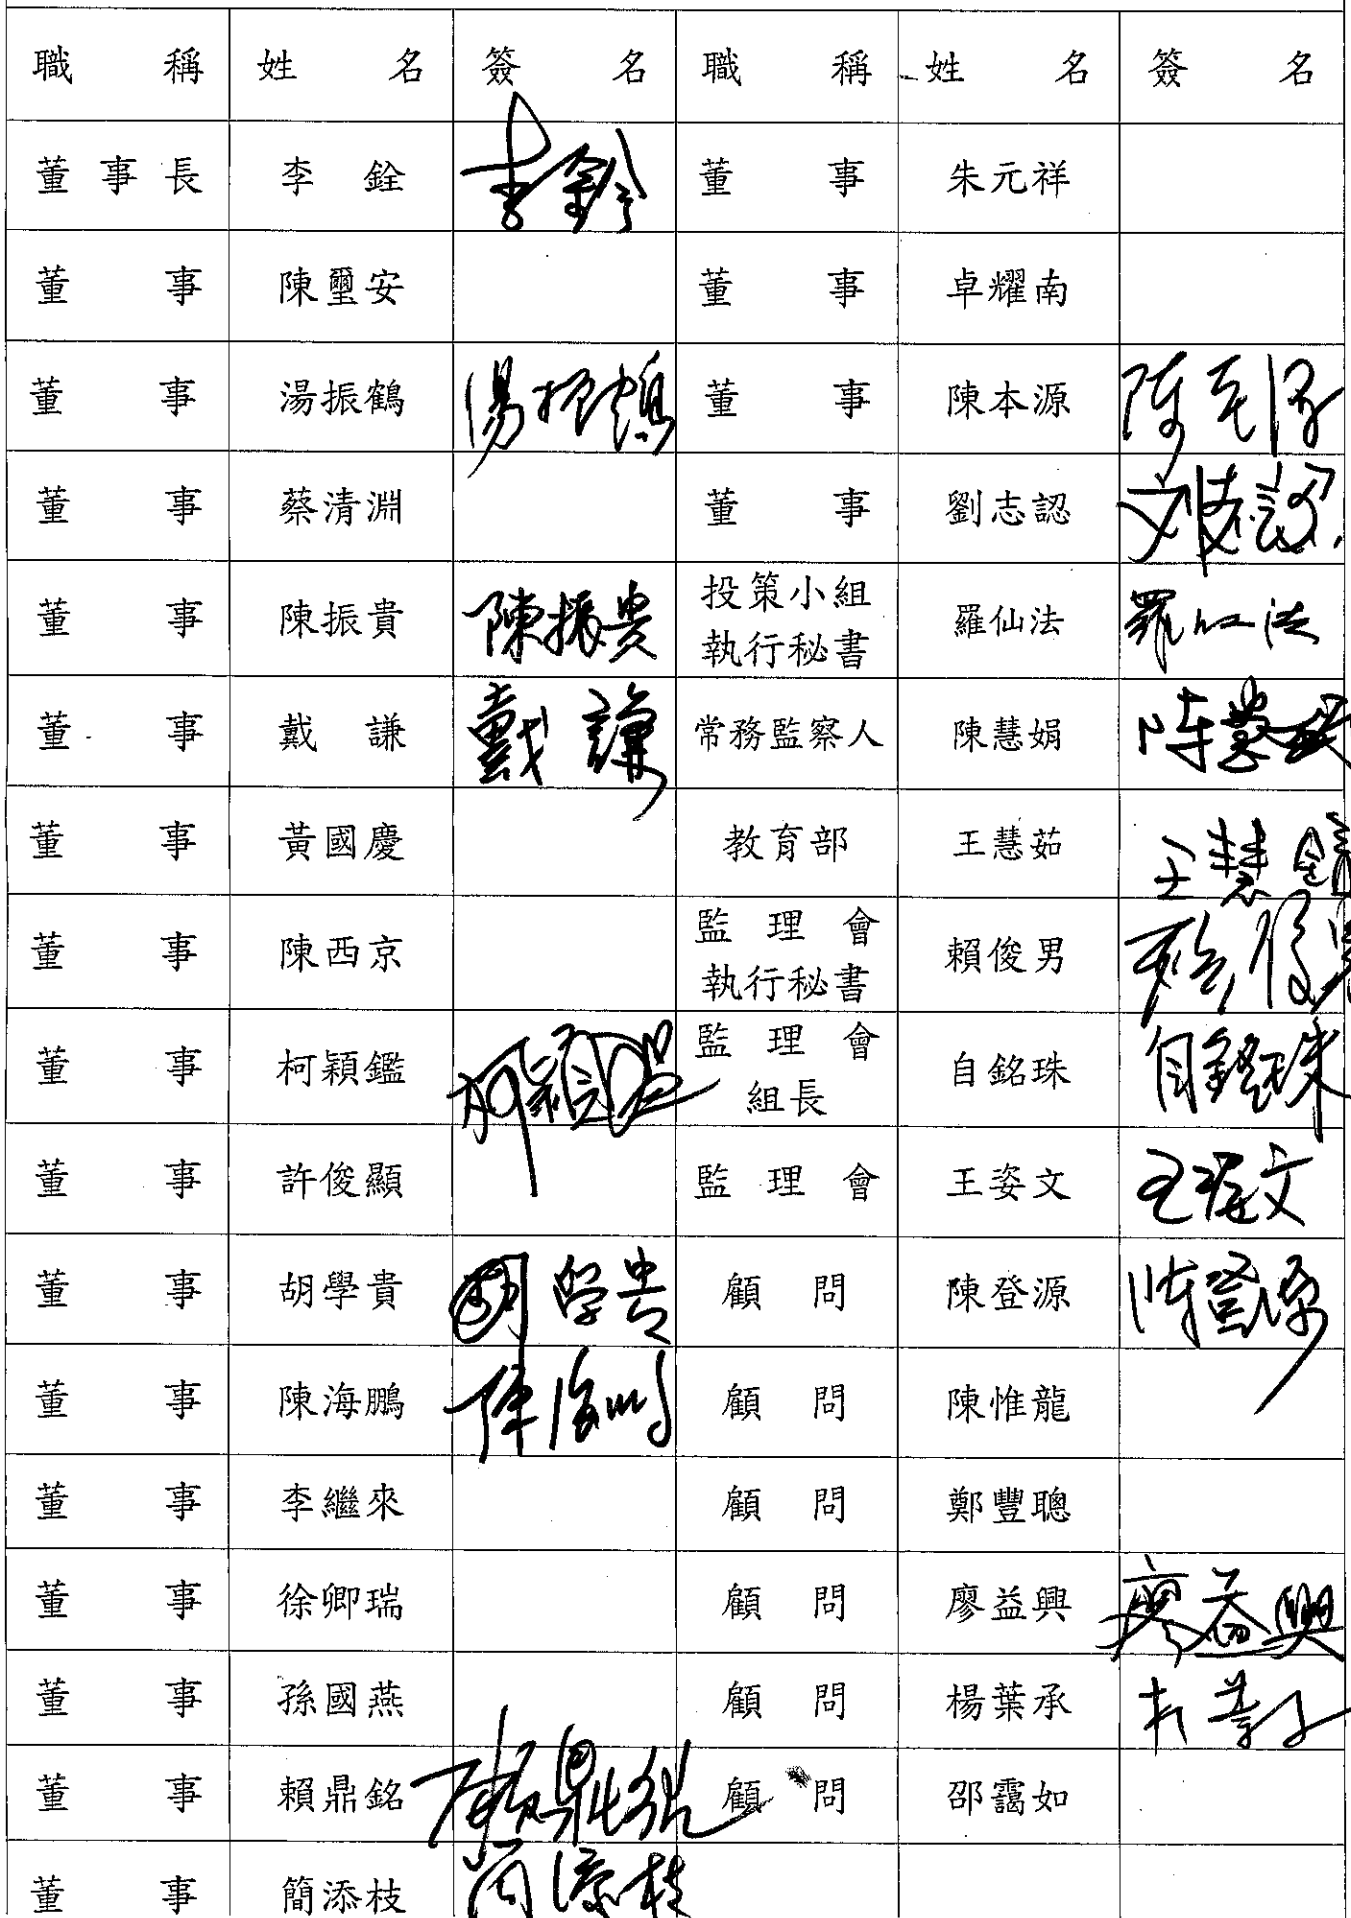 職稱 姓名 簽名 職稱 姓名 簽名
董事長 李銓 李銓 董事 朱元祥
董事 陳璽安 董事 卓耀南
董事 湯振鶴 湯振鶴 董事 陳本源 陳本源
董事 蔡清淵 董事 劉志認 刘志認
董事 陳振貴 陳振貴 投策小組 羅仙法 羅仙法
執行秘書
董事 戴謙 戴謙 常務監察人 陳慧娟 陳慧娟
董事 黃國慶 教育部 王慧茹 王慧
董事 陳西京 監理會 賴俊男 賴俊男
執行秘書
董事 柯穎鑑 柯穎鑑 監理會 自銘珠 自銘珠
組長
董事 許俊顯 監理會 王姿文 王姿文
董事 胡學貴 胡學貴 顧問 陳登源 陳登源
董事 陳海鵬 陳海鵬 顧問 陳惟龍
董事 李繼來 顧問 鄭豐聰
董事 徐卿瑞 顧問 廖益興 廖益興
董事 孫國燕 顧問 楊葉承
董事 賴鼎銘 賴鼎銘 顧問 邵靄如
董事 簡添枝 簡添枝